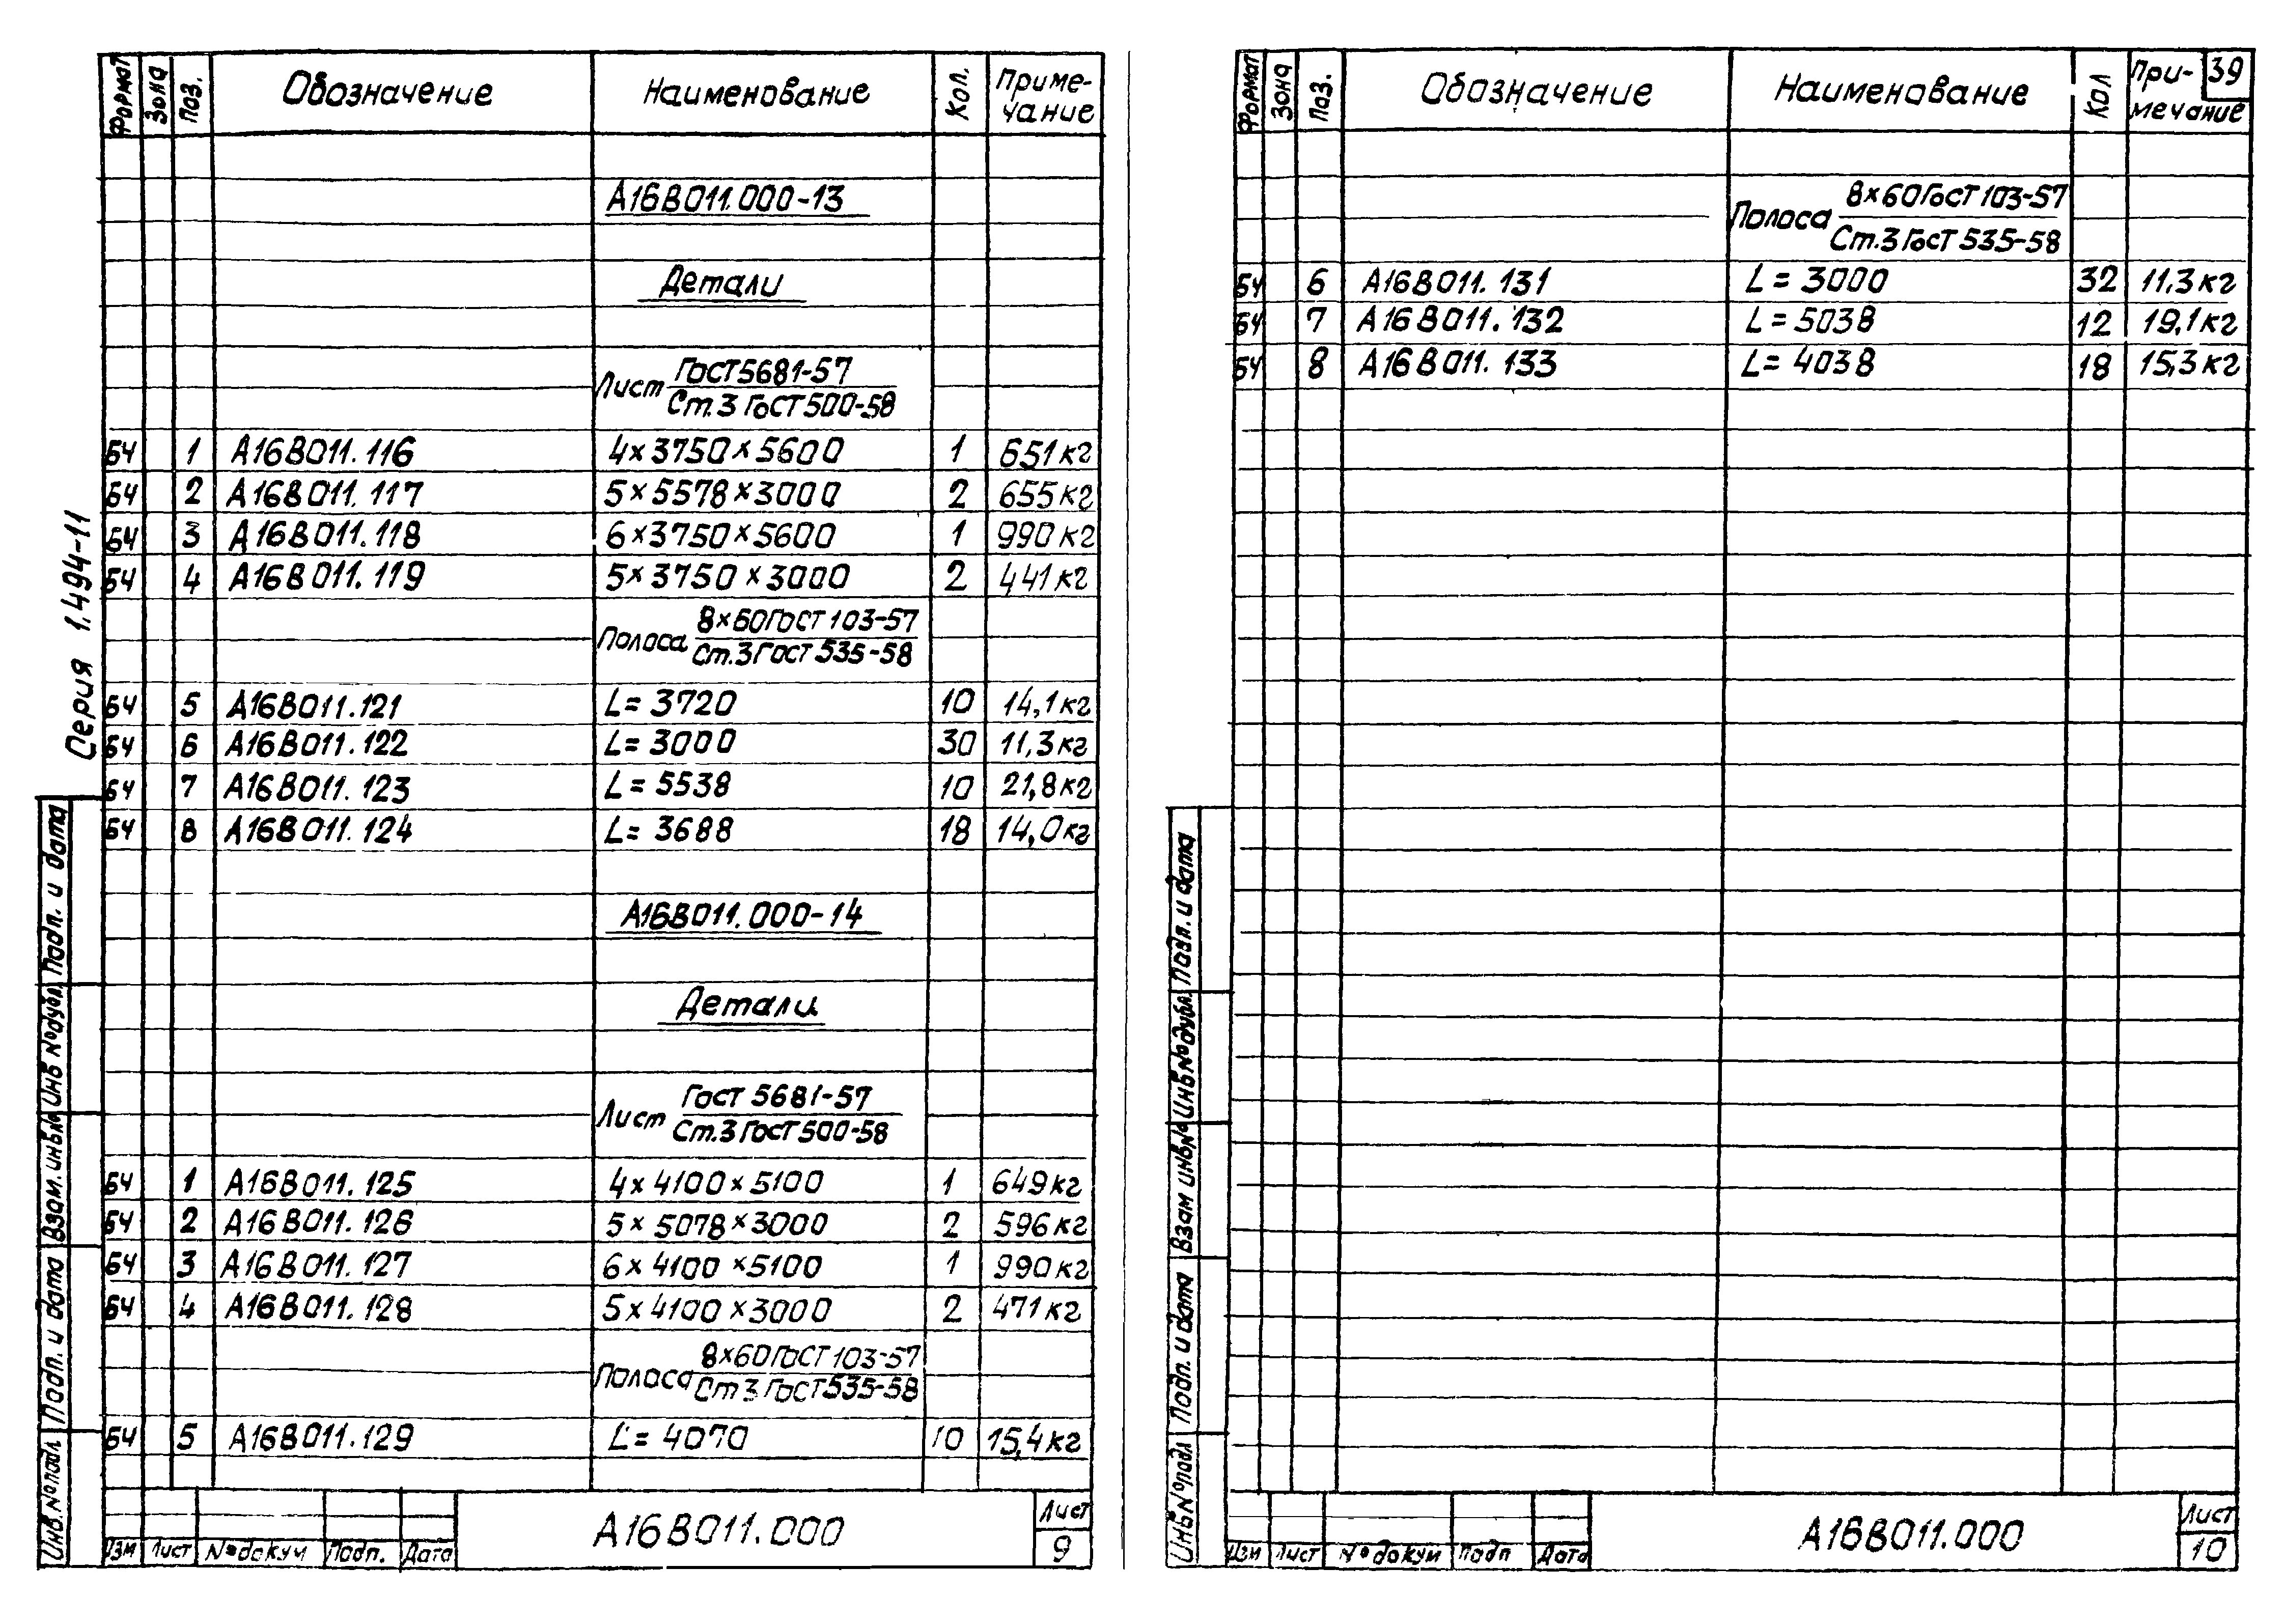 Формат Зона Поз. Обозначение Наименование Кол. Приме-
чание
А16В011.000-13
Детали
Лист ГОСТ 5681-57
Ст.3 ГОСТ 500-58
БЧ 1 А16В011.116 4×3750×5600 1 651кг
БЧ 2 А16В011.117 5×5578×3000 2 655кг
БЧ 3 А16В011.118 6×3750×5600 1 990кг
БЧ 4 А16В011.119 5×3750×3000 2 441кг
Полоса 8×60 ГОСТ 103-57
Ст.3 ГОСТ 535-58
БЧ 5 А16В011.121 L=3720 10 14,1кг
БЧ 6 А16В011.122 L=3000 30 11,3кг
БЧ 7 А16В011.123 L=5538 10 21,8кг
БЧ 8 А16В011.124 L=3688 18 14,0кг
А16В011.000-14
Детали
Лист ГОСТ 5681-57
Ст.3 ГОСТ 500-58
БЧ 1 А16В011.125 4×4100×5100 1 649кг
БЧ 2 А16В011.126 5×5078×3000 2 596кг
БЧ 3 А16В011.127 6×4100×5100 1 990кг
БЧ 4 А16В011.128 5×4100×3000 2 471кг
Полоса 8×60 ГОСТ 103-57
Ст 3 ГОСТ 535-58
БЧ 5 А16В011.129 L=4070 10 15,4кг
Серия 1.494-11
Подп. и дата
Инв №дубл.
Взам. инв.№
Подп. и дата
Инв.№подл
Изм Лист №докум Подп. Дата
А16В011.000
Лист
9
Формат Зона Поз. Обозначение Наименование Кол При-
мечание
39
Полоса 8×60 ГОСТ 103-57
Ст.3 ГОСТ 535-58
БЧ 6 А16В011.131 L=3000 32 11,3кг
БЧ 7 А16В011.132 L=5038 12 19,1кг
БЧ 8 А16В011.133 L=4038 18 15,3кг
Подп. и дата
Инв.№дубл.
Взам инв.№
Подп. и дата
Инв.№подл
Изм Лист №докум Подп Дата
А16В011.000
Лист
10